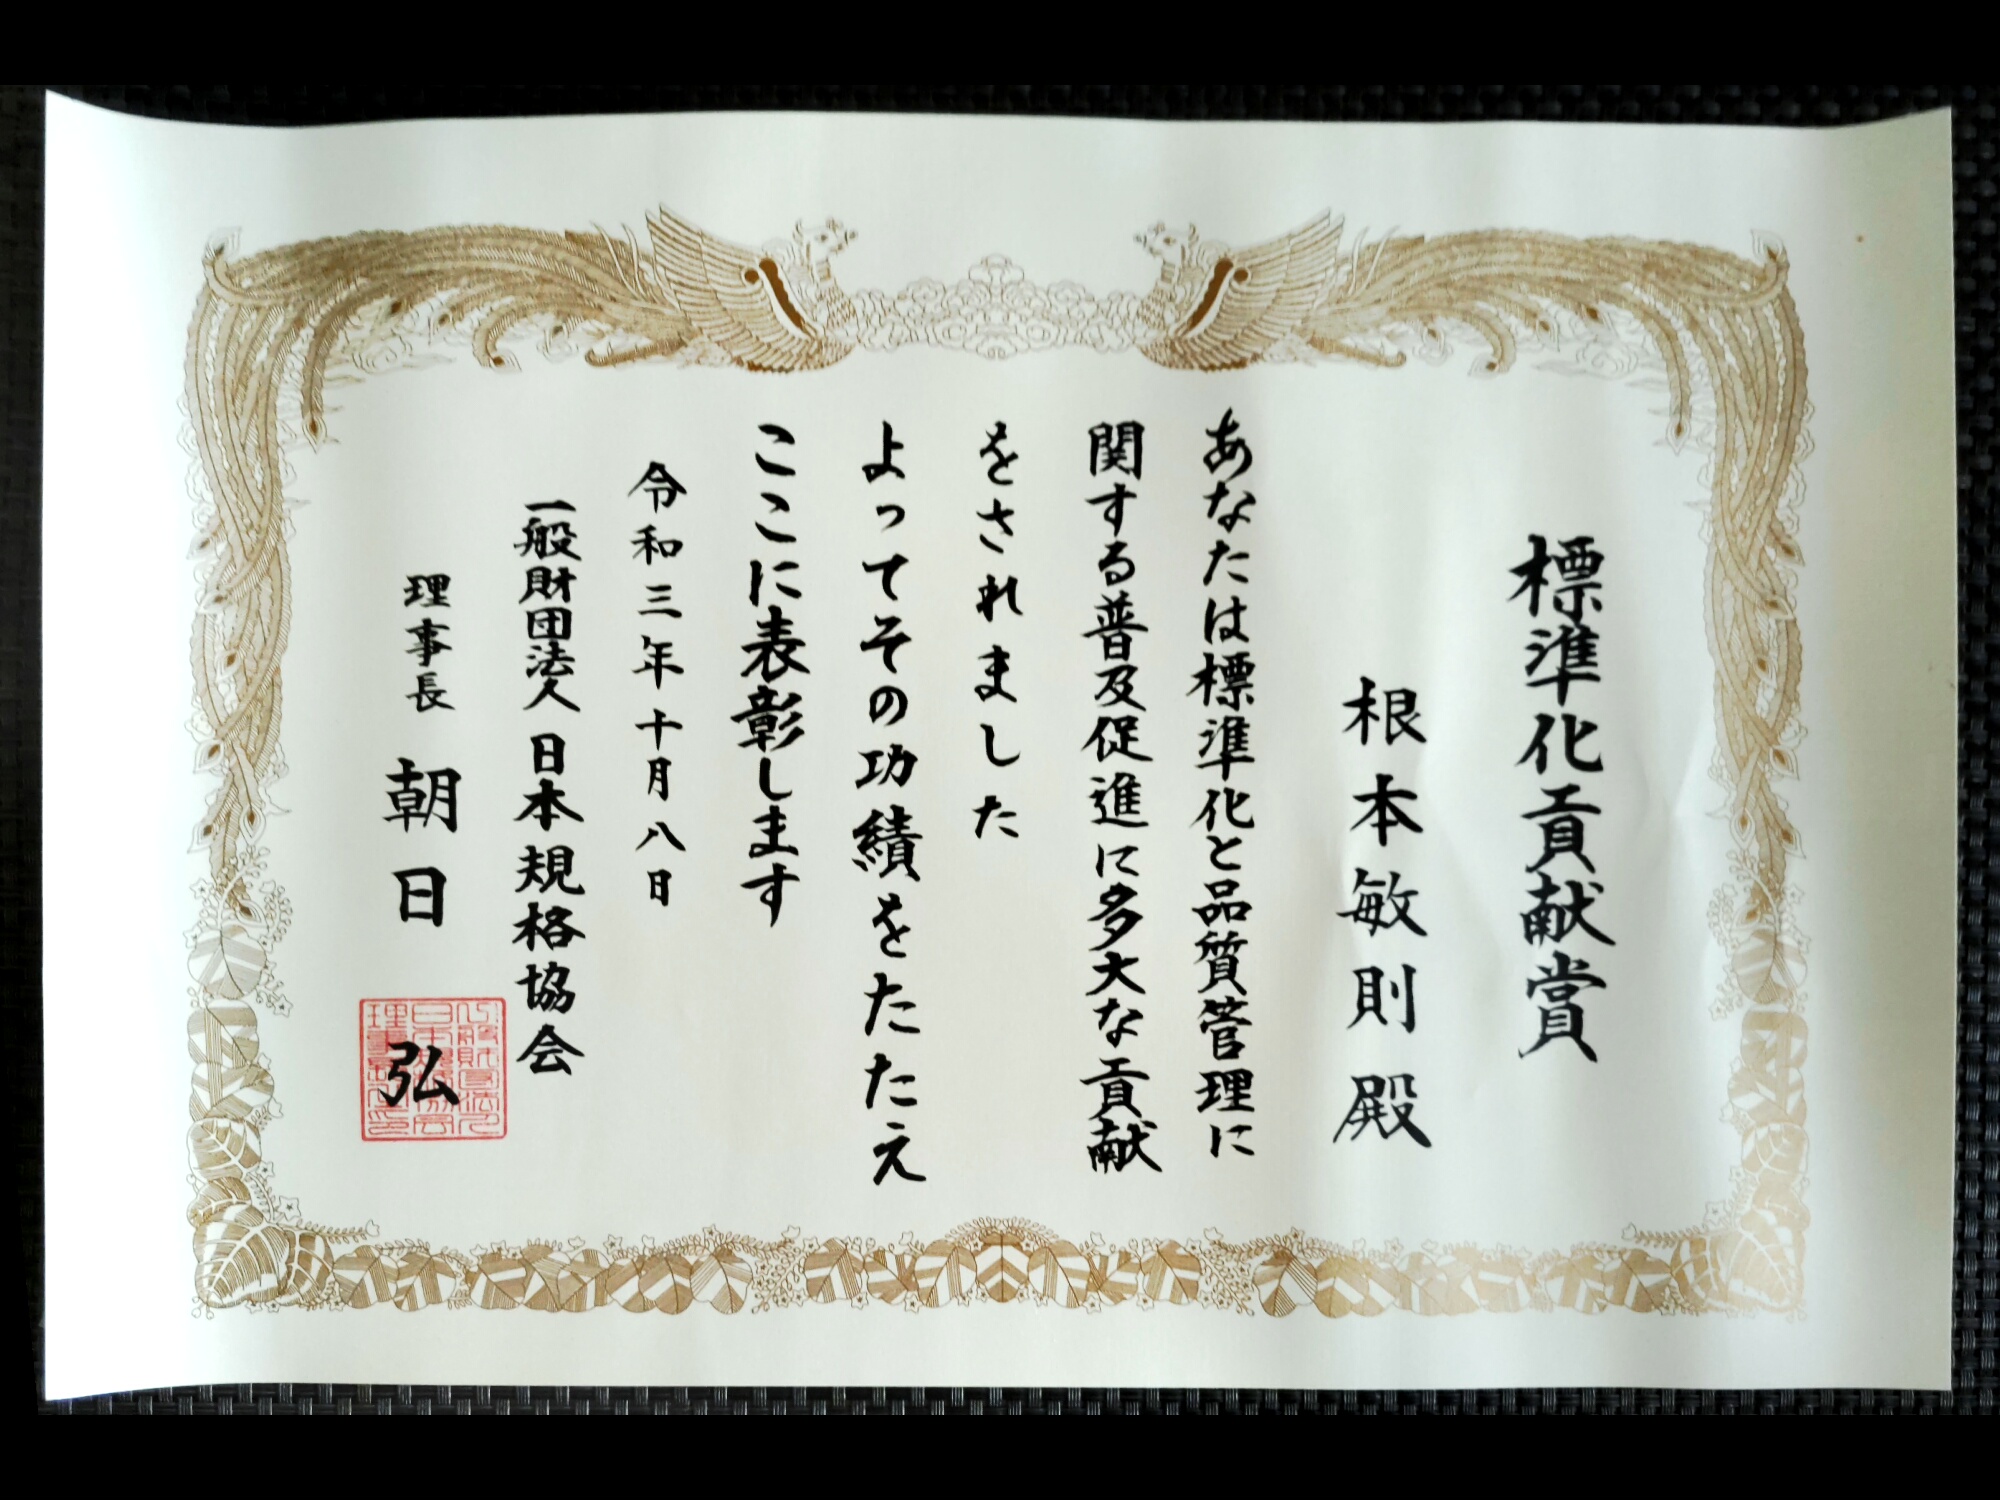 標準化貢献賞
根本敏則殿
あなたは標準化と品質管理に
関する普及促進に多大な貢献
をされました
よってその功績をたたえ
ここに表彰します
令和三年十月八日
一般財団法人日本規格協会
理事長 朝日弘
一般財団法人
日本規格協会
理事長之印